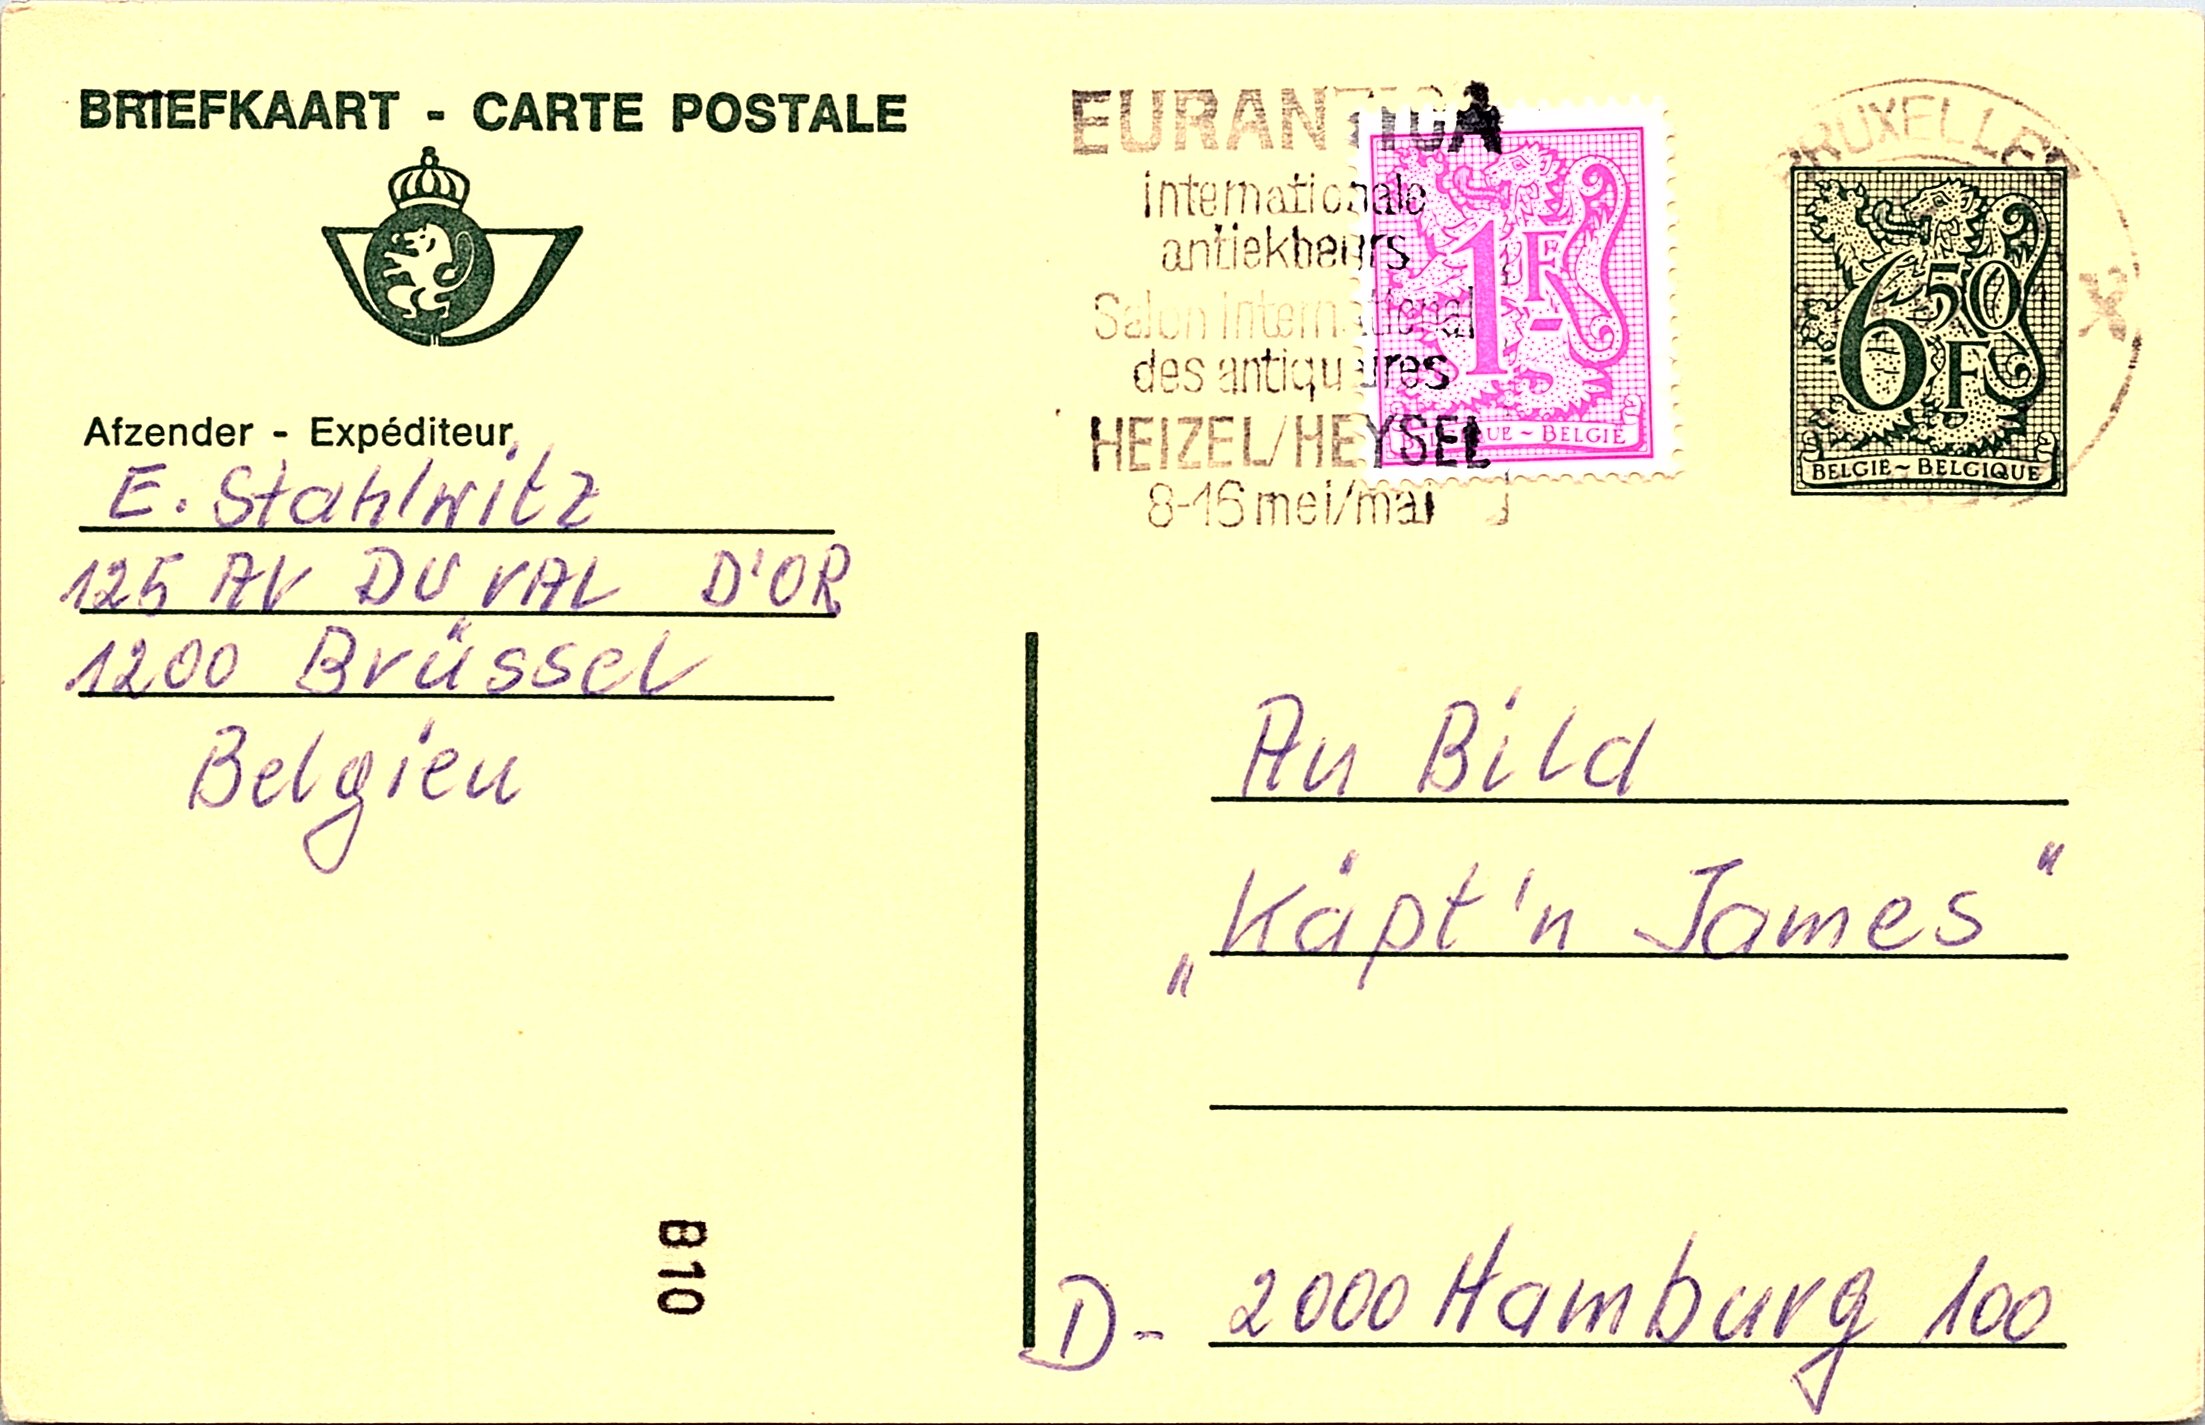 BRIEFKAART - CARTE POSTALE
Afzender - Expéditeur
E. Stahlwitz
125 AV DU VAL D'OR
1200 Brüssel
Belgien
B10
EURANTICA
internationale
antiekbeurs
Salon international
des antiquaires
HEIZEL/HEYSEL
8-16 mei/mai
1F
BELGIQUE ~ BELGIË
BRUXELLES X
6 50 F
BELGIË ~ BELGIQUE
An Bild
„Käpt'n James"
D- 2000 Hamburg 100